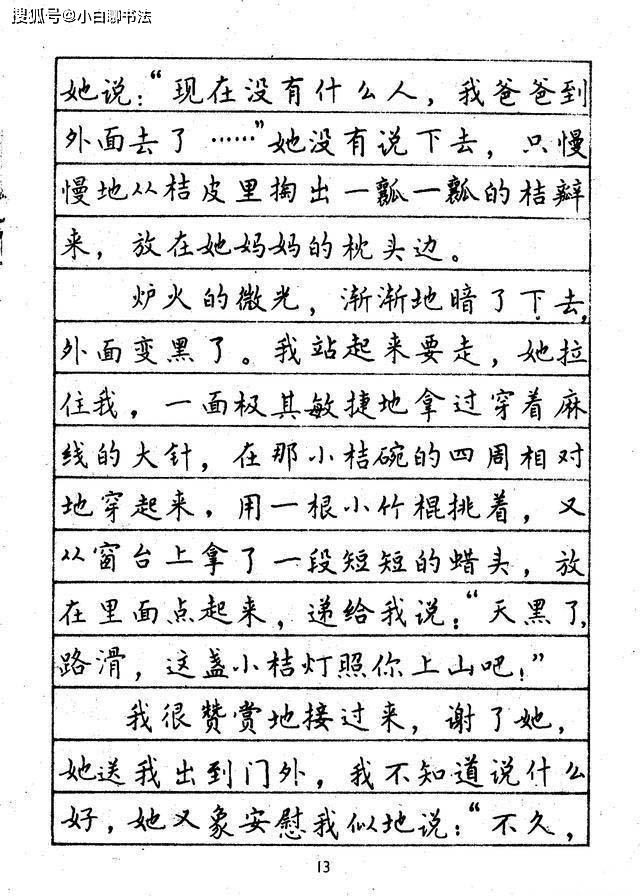 搜狐号@小白聊书法
她说：“现在没有什么人，我爸爸到
外面去了……”她没有说下去，只慢
慢地从桔皮里掏出一瓤一瓤的桔瓣
来，放在她妈妈的枕头边。
炉火的微光，渐渐地暗了下去，
外面变黑了。我站起来要走，她拉
住我，一面极其敏捷地拿过穿着麻
线的大针，在那小桔碗的四周相对
地穿起来，用一根小竹棍挑着，又
从窗台上拿了一段短短的蜡头，放
在里面点起来，递给我说：“天黑了，
路滑，这盏小桔灯照你上山吧！”
我很赞赏地接过来，谢了她，
她送我出到门外，我不知道说什么
好，她又象安慰我似地说：“不久，
13